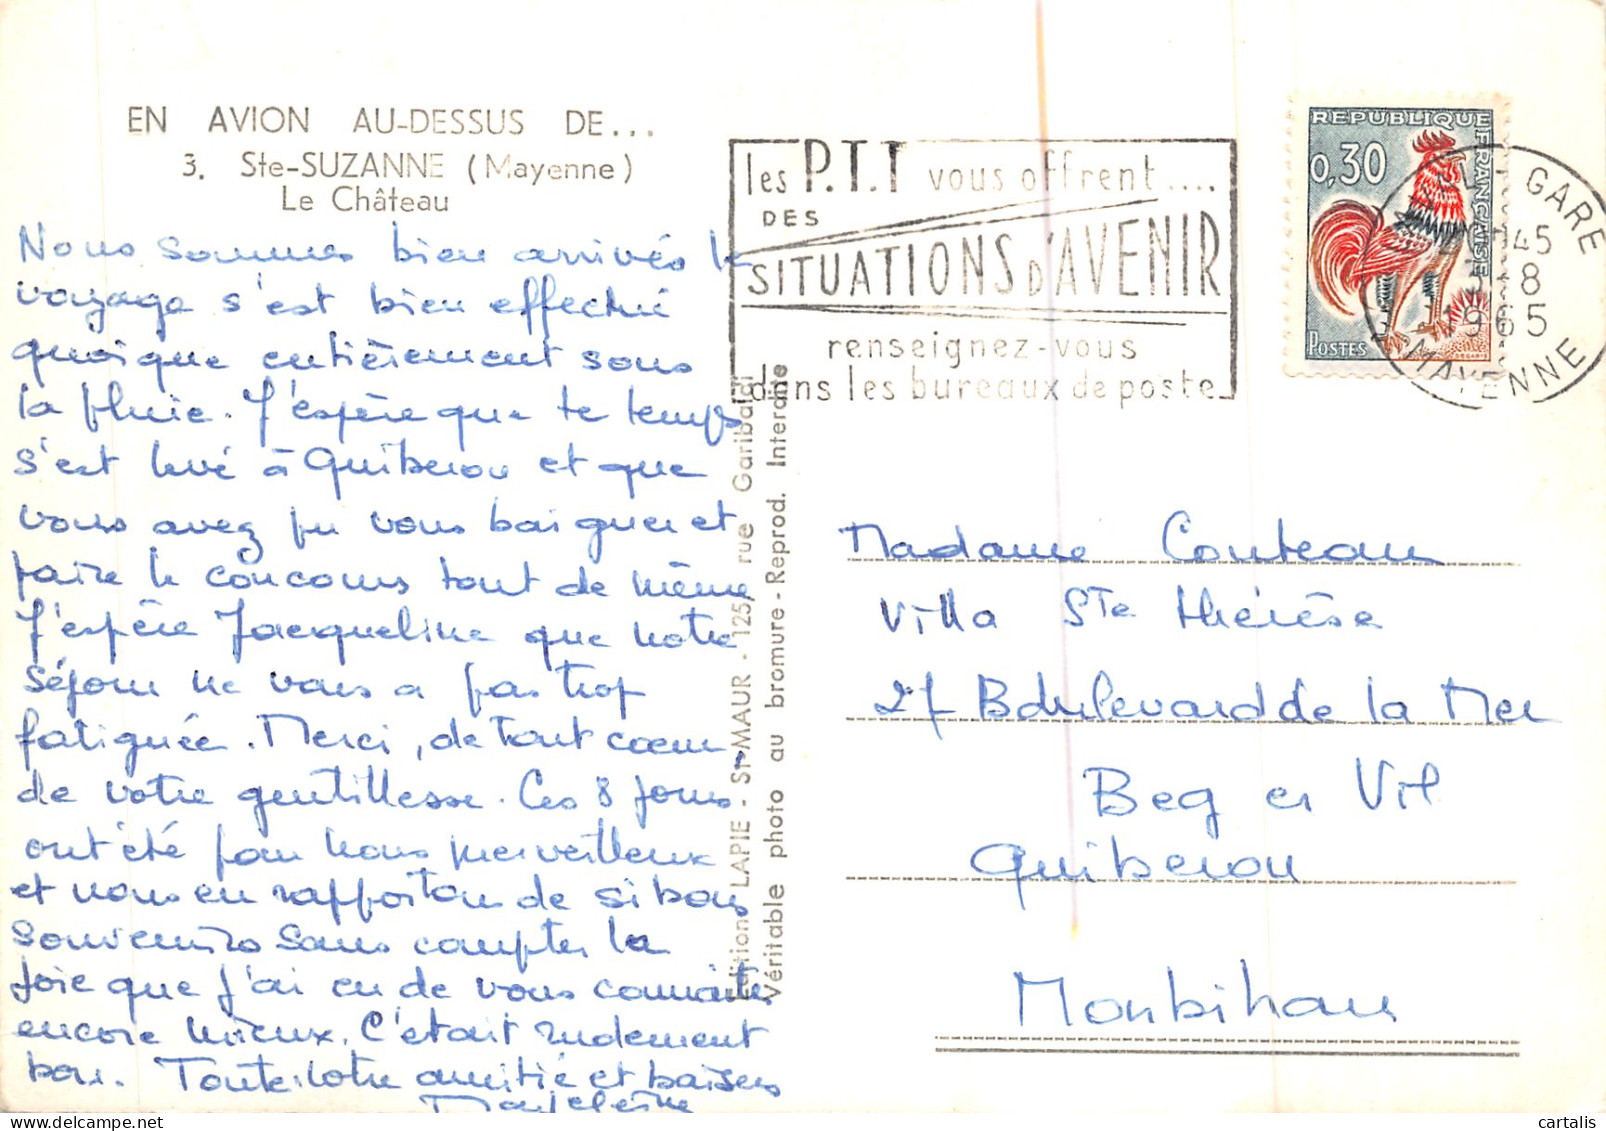 EN AVION AU-DESSUS DE...
3. Ste-SUZANNE (Mayenne)
Le Château
Nous sommes bien arrivés le
voyage s'est bien effectué
quoique entièrement sous
la pluie. J'espère que le temps
s'est levé à Quiberon et que
vous avez pu vous baigner et
faire le concours tout de même
J'espère Jacqueline que notre
séjour ne vous a pas trop
fatiguée. Merci, de tout coeur,
de votre gentillesse. Ces 8 jours
ont été pour nous merveilleux
et nous en rapportons de si bons
souvenirs sans compter la
joie que j'ai eu de vous connaître
encore mieux. C'était rudement
bon. Toute notre amitié et baisers
Madeleine
Edition LAPIE - St-MAUR - 125, rue Garibaldi
Véritable photo au bromure - Reprod. Interdite
les P.T.T vous offrent....
DES
SITUATIONS D'AVENIR
renseignez-vous
dans les bureaux de poste
REPUBLIQUE FRANÇAISE
0,30
POSTES
GARE
45
8
1965
MAYENNE
Madame Couteau
Villa Ste Thérèse
27 Boulevard de la Mer
Beg er Vil
Quiberon
Morbihan
cartalis